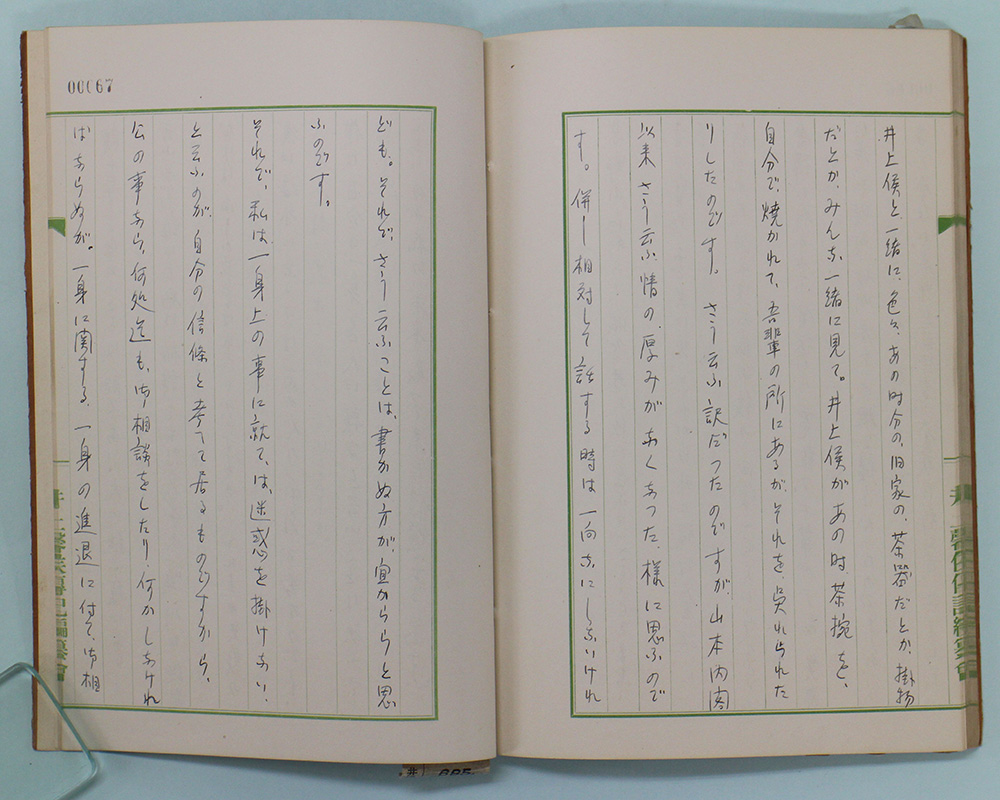 井上侯と一緒に、色々、あの時分の、旧家の、茶器だとか、掛物
だとか、みんな一緒に見て。井上侯があの時茶碗を、
自分で、焼かれて、吾輩の所にあるが、それを、呉れられた
りしたのです。さう云ふ訳だつたのですが、山本内閣
以来、さう云ふ情の、厚みがなくなつた、様に思ふので
す。併し相対して話する時は一向なにしないけれ
00067
ども。それで、さう云ふことは、書かぬ方が、宜からうと思
ふのです。
それで、私は、一身上の事に就ては、迷惑を掛けない、
と云ふのが、自分の信條と考へて居るものですから、
公の事なら、何処迄も、御相談をしたり、何かしなけれ
ばならぬが。一身に関する、一身の進退に付て、御相